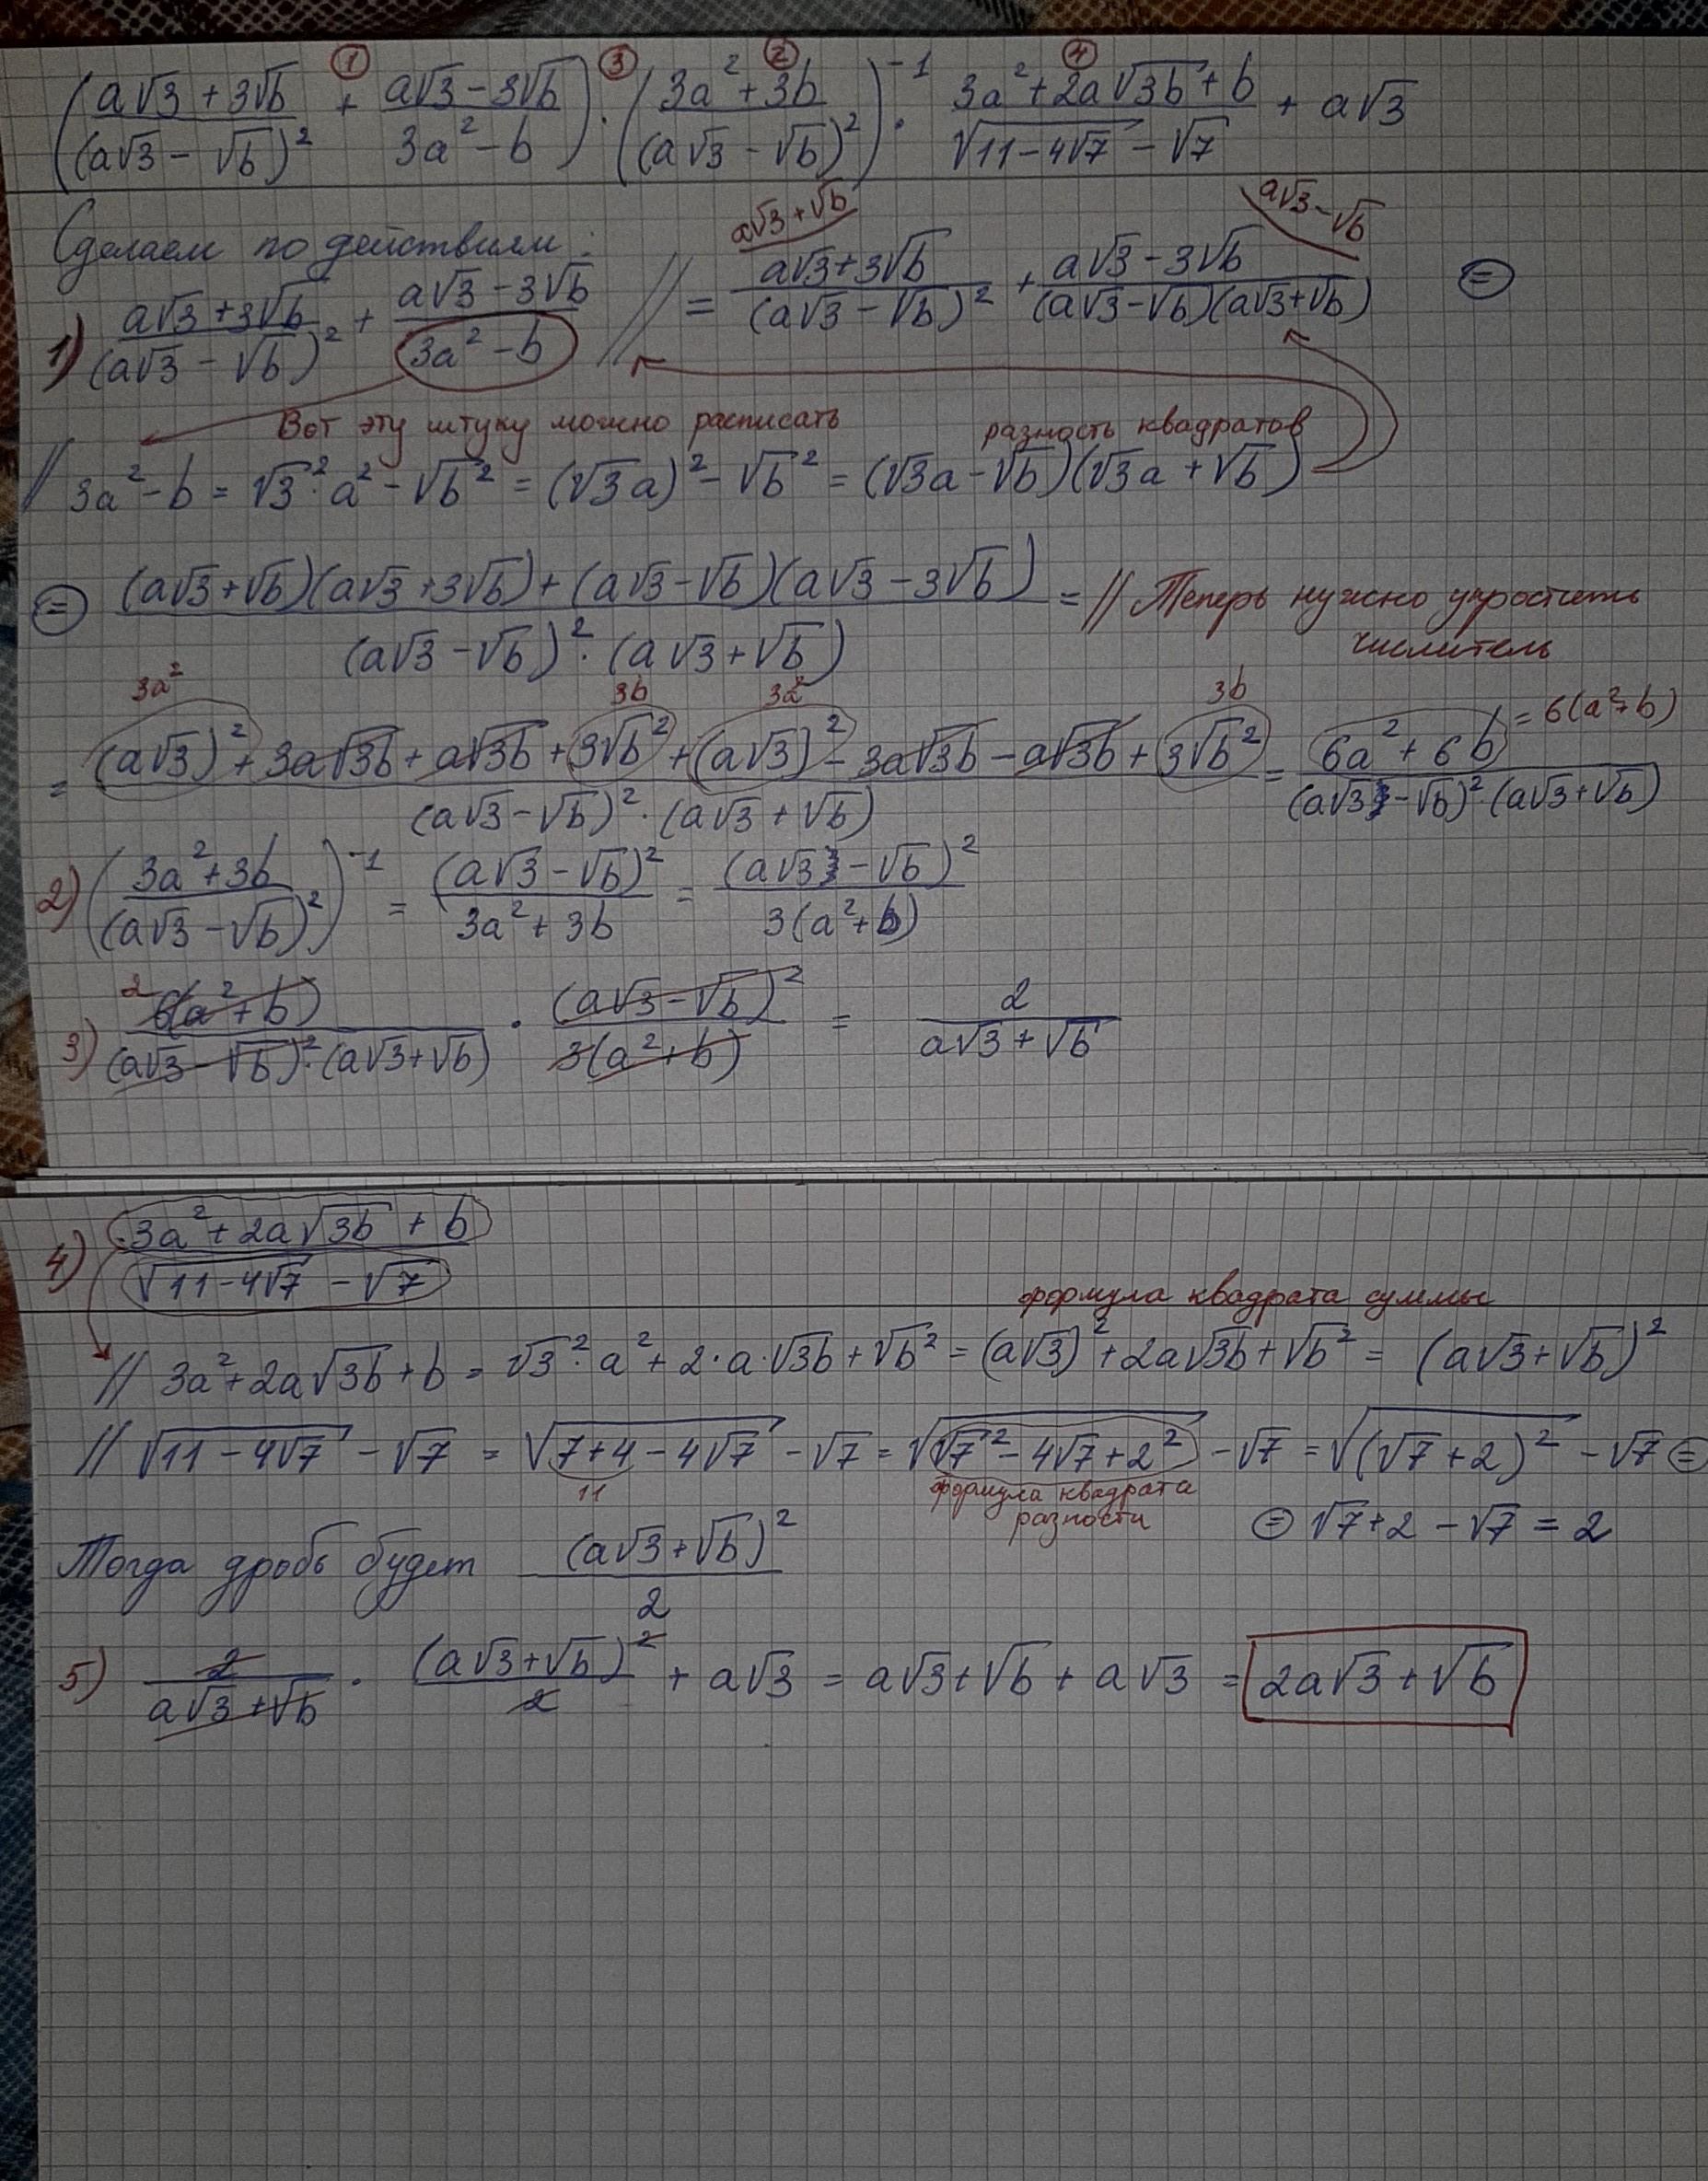 ① ③ ② ④
((a√3 + 3√b)/(a√3 − √b)² + (a√3 − 3√b)/(3a² − b)) · ((3a² + 3b)/(a√3 − √b)²)⁻¹ · (3a² + 2a√(3b) + b)/(√(11 − 4√7) − √7) + a√3
Сделаем по действиям:
a√3 + √b a√3 − √b
1) (a√3 + 3√b)/(a√3 − √b)² + (a√3 − 3√b)/(3a² − b) // = (a√3 + 3√b)/(a√3 − √b)² + (a√3 − 3√b)/((a√3 − √b)(a√3 + √b)) ⊜
Вот эту штуку можно расписать разность квадратов
// 3a² − b = √3² · a² − √b² = (√3a)² − √b² = (√3a − √b)(√3a + √b)
⊜ ((a√3 + √b)(a√3 + 3√b) + (a√3 − √b)(a√3 − 3√b))/((a√3 − √b)² · (a√3 + √b)) = // Теперь нужно упростить
числитель
3a² 3b 3a² 3b
= ((a√3)² + 3a√3b + a√3b + 3√b² + (a√3)² − 3a√3b − a√3b + 3√b²)/((a√3 − √b)² · (a√3 + √b)) = (6a² + 6b)/((a√3 − √b)² · (a√3 + √b)) = 6(a² + b)
2) ((3a² + 3b)/(a√3 − √b)²)⁻¹ = (a√3 − √b)²/(3a² + 3b) = (a√3 − √b)²/(3(a² + b))
2
3) 6(a² + b)/((a√3 − √b)² · (a√3 + √b)) · (a√3 − √b)²/(3(a² + b)) = 2/(a√3 + √b)
4) (3a² + 2a√(3b) + b)/(√(11 − 4√7) − √7)
формула квадрата суммы
// 3a² + 2a√(3b) + b = √3² · a² + 2 · a · √3b + √b² = (a√3)² + 2a√3b + √b² = (a√3 + √b)²
// √(11 − 4√7) − √7 = √(7 + 4 − 4√7) − √7 = √(√7² − 4√7 + 2²) − √7 = √((√7 + 2)²) − √7 ⊜
11 формула квадрата
разности
⊜ √7 + 2 − √7 = 2
Тогда дробь будет (a√3 + √b)²/2
5) 2/(a√3 + √b) · (a√3 + √b)²/2 + a√3 = a√3 + √b + a√3 = 2a√3 + √b